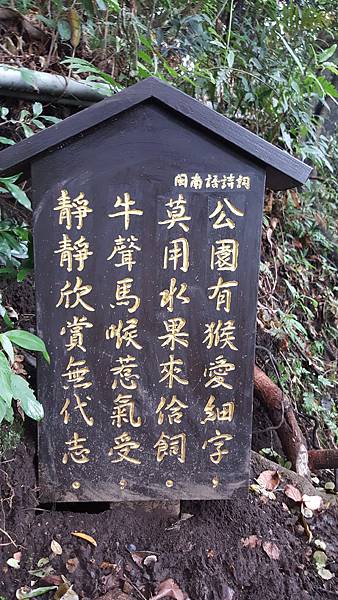 閩南語詩詞
公園有猴愛細字
莫用水果來俗飼
牛聲馬喉惹氣受
靜靜欣賞無代志